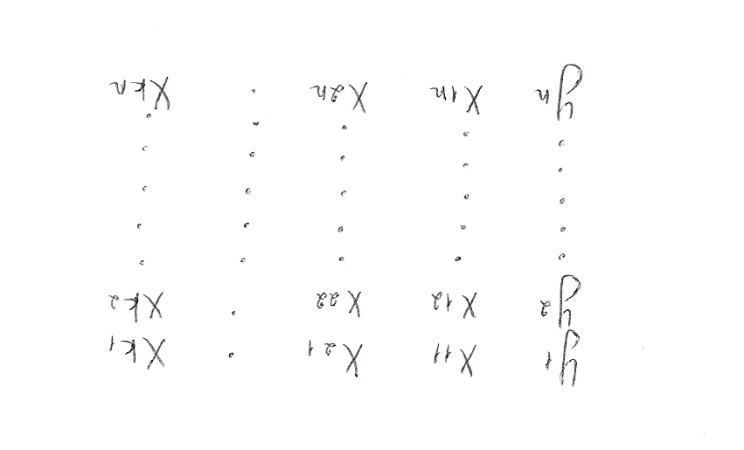 y₁ x₁₁ x₂₁ . xₖ₁
y₂ x₁₂ x₂₂ . xₖ₂
. . . . .
. . . . .
. . . . .
. . . . .
. . . . .
yₙ x₁ₙ x₂ₙ . xₖₙ